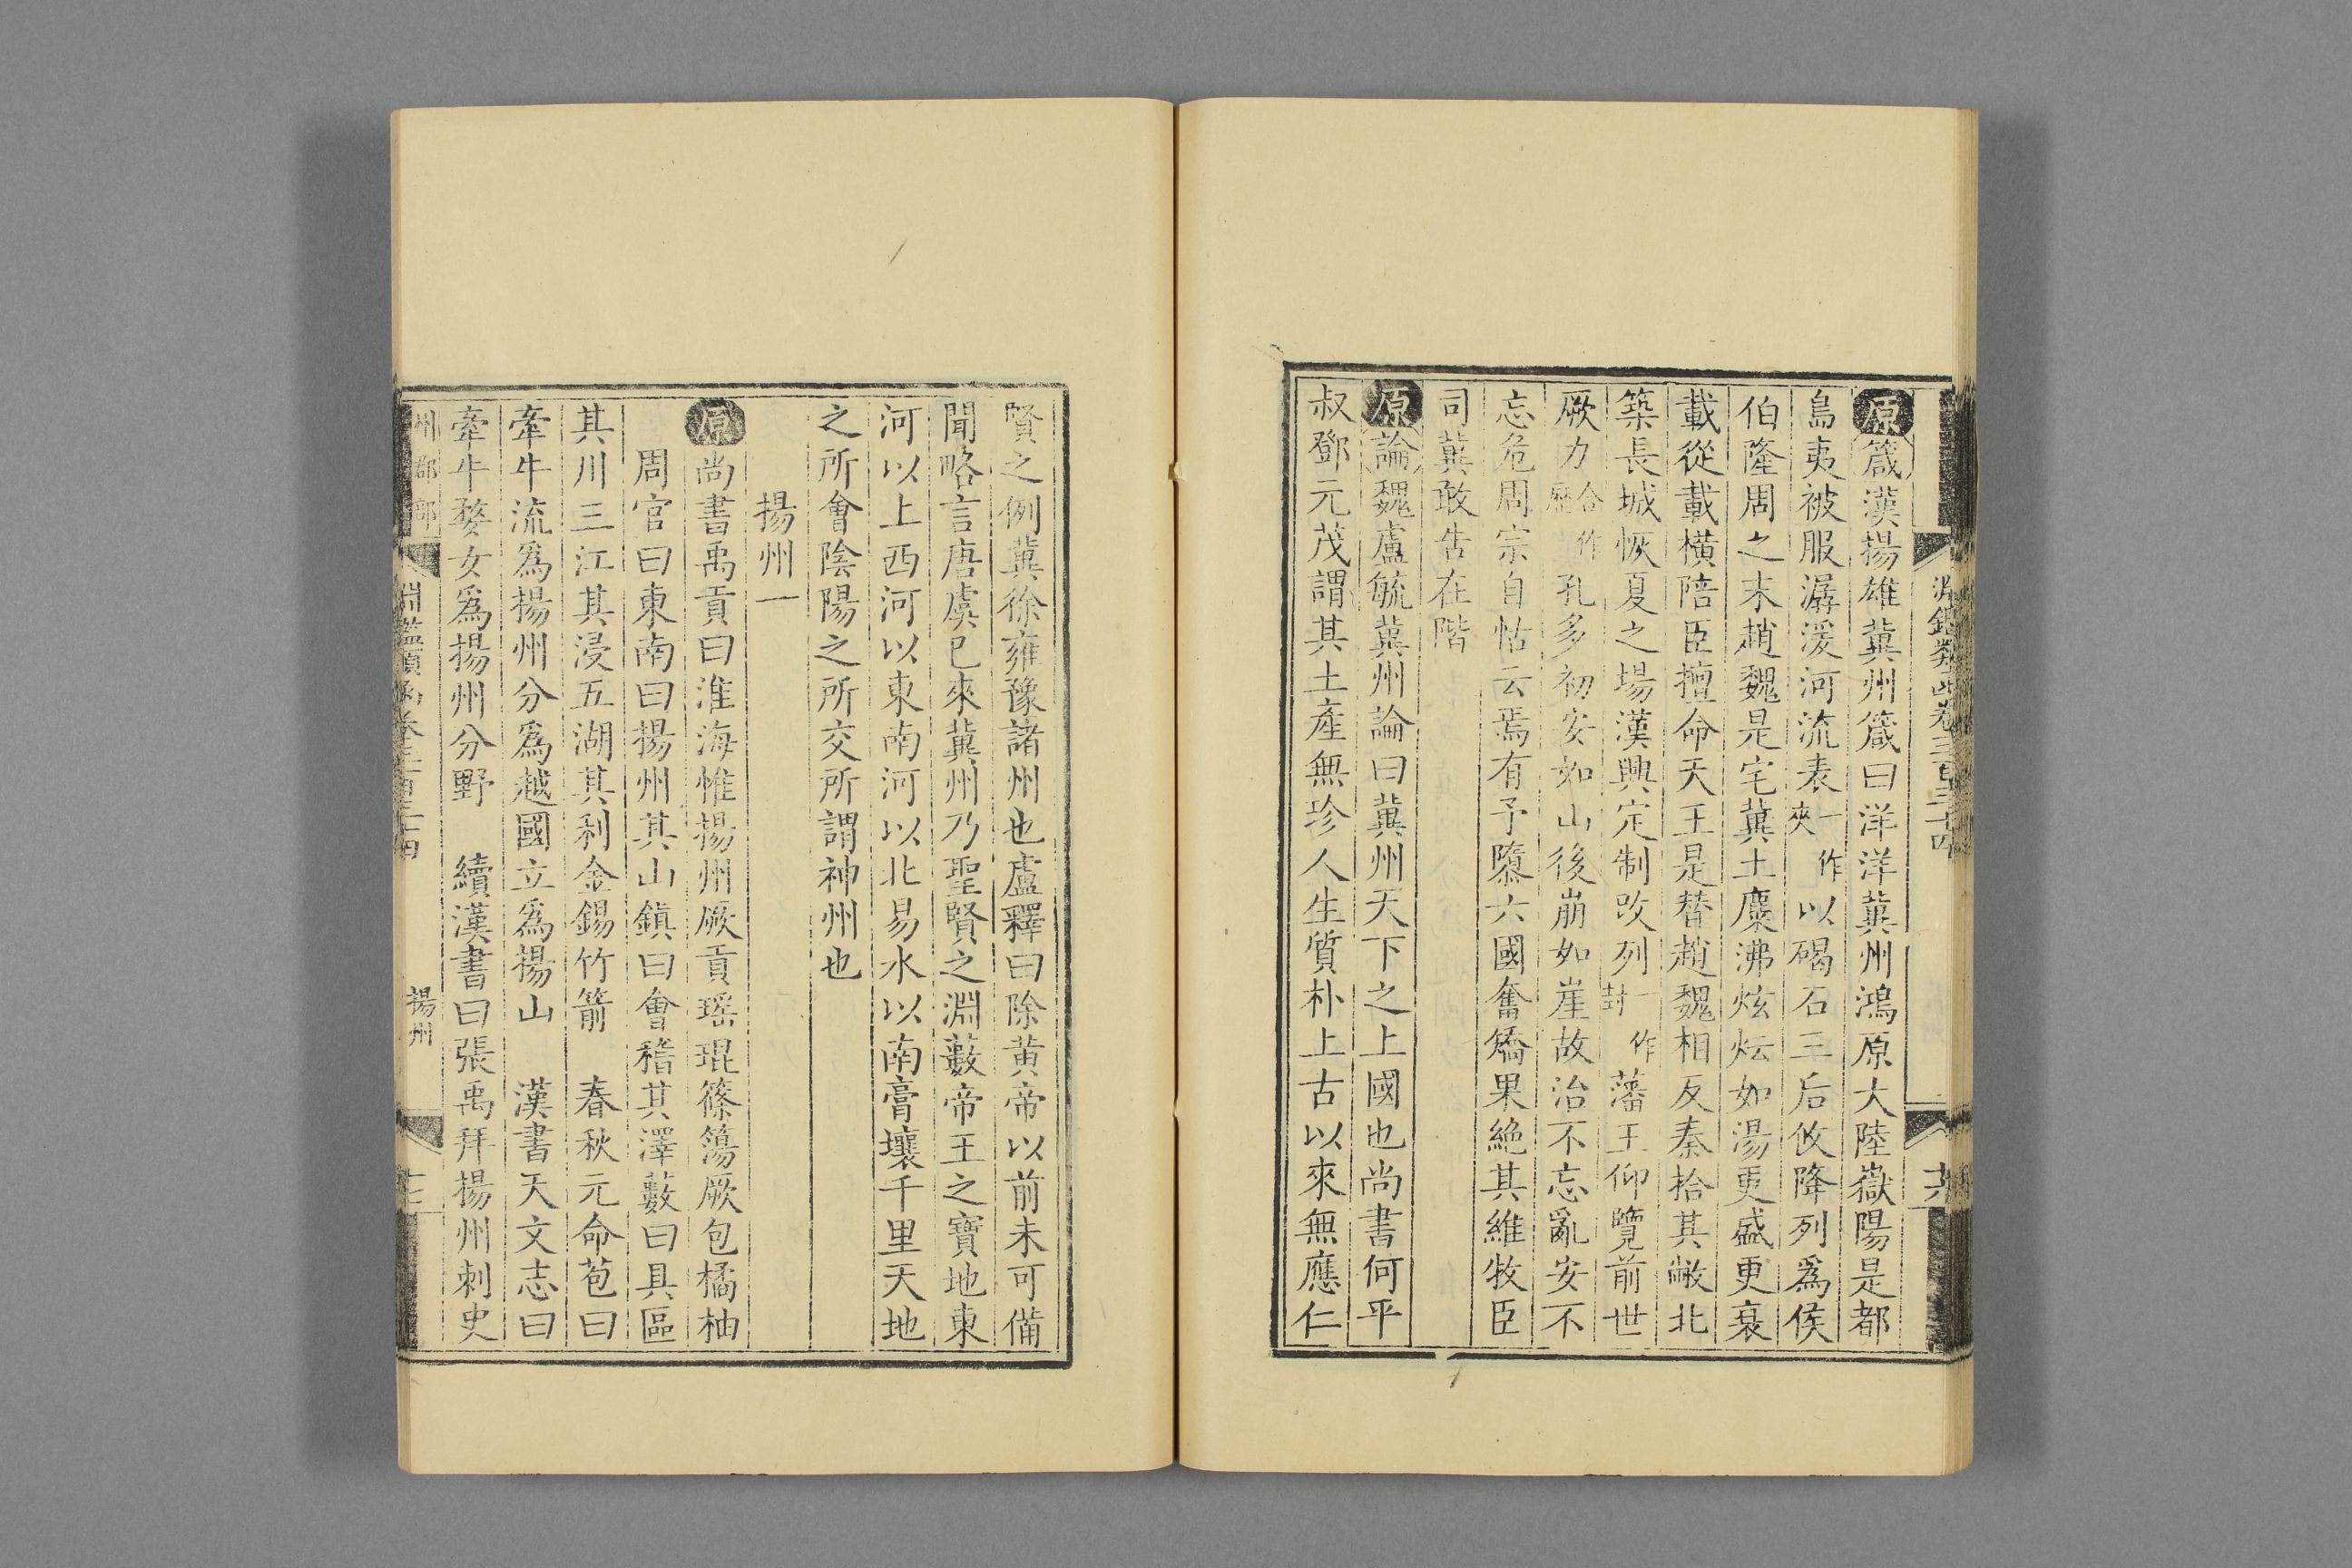 淵鑑類函卷三百三十四 十六
原箴漢揚雄冀州箴曰洋洋冀州鴻原大陸嶽陽是都
島夷被服潺湲河流表一作夾以碣石三后攸降列爲侯
伯隆周之末趙魏是宅冀土麋沸炫炫如湯更盛更衰
載從載橫陪臣擅命天王是替趙魏相反秦拾其敝北
築長城恢夏之場漢興定制改列一作封藩王仰覽前世
厥力合作歷孔多初安如山後崩如崖故治不忘亂安不
忘危周宗自怙云焉有予隳六國奮矯果絕其維牧臣
司冀敢告在階
原論魏盧毓冀州論曰冀州天下之上國也尚書何平
叔鄧元茂謂其土產無珍人生質朴上古以來無應仁
賢之例冀徐雍豫諸州也盧釋曰除黃帝以前未可備
聞略言唐虞已來冀州乃聖賢之淵藪帝王之寶地東
河以上西河以東南河以北易水以南膏壤千里天地
之所會陰陽之所交所謂神州也
揚州一
原尚書禹貢曰淮海惟揚州厥貢瑤琨篠簜厥包橘柚
周官曰東南曰揚州其山鎮曰會稽其澤藪曰具區
其川三江其浸五湖其利金錫竹箭 春秋元命苞曰
牽牛流爲揚州分爲越國立爲揚山 漢書天文志曰
牽牛婺女爲揚州分野 續漢書曰張禹拜揚州刺史
州郡部 淵鑑類函卷三百三十四 揚州 十七